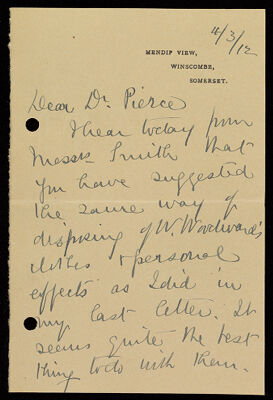 4/3/12
MENDIP VIEW,
WINSCOMBE,
SOMERSET.
Dear Dr. Pierce
I hear today from
Messrs Smith that
you have suggested
the same way of
disposing of W. Woodward's
clothes & personal
effects as I did in
my last letter. It
seems quite the best
thing to do with them.